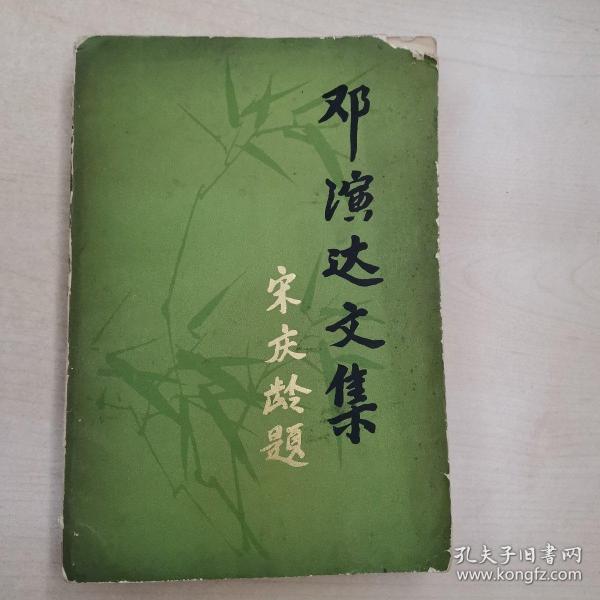 邓演达文集
宋庆龄题
孔夫子旧书网
www.kongfz.com